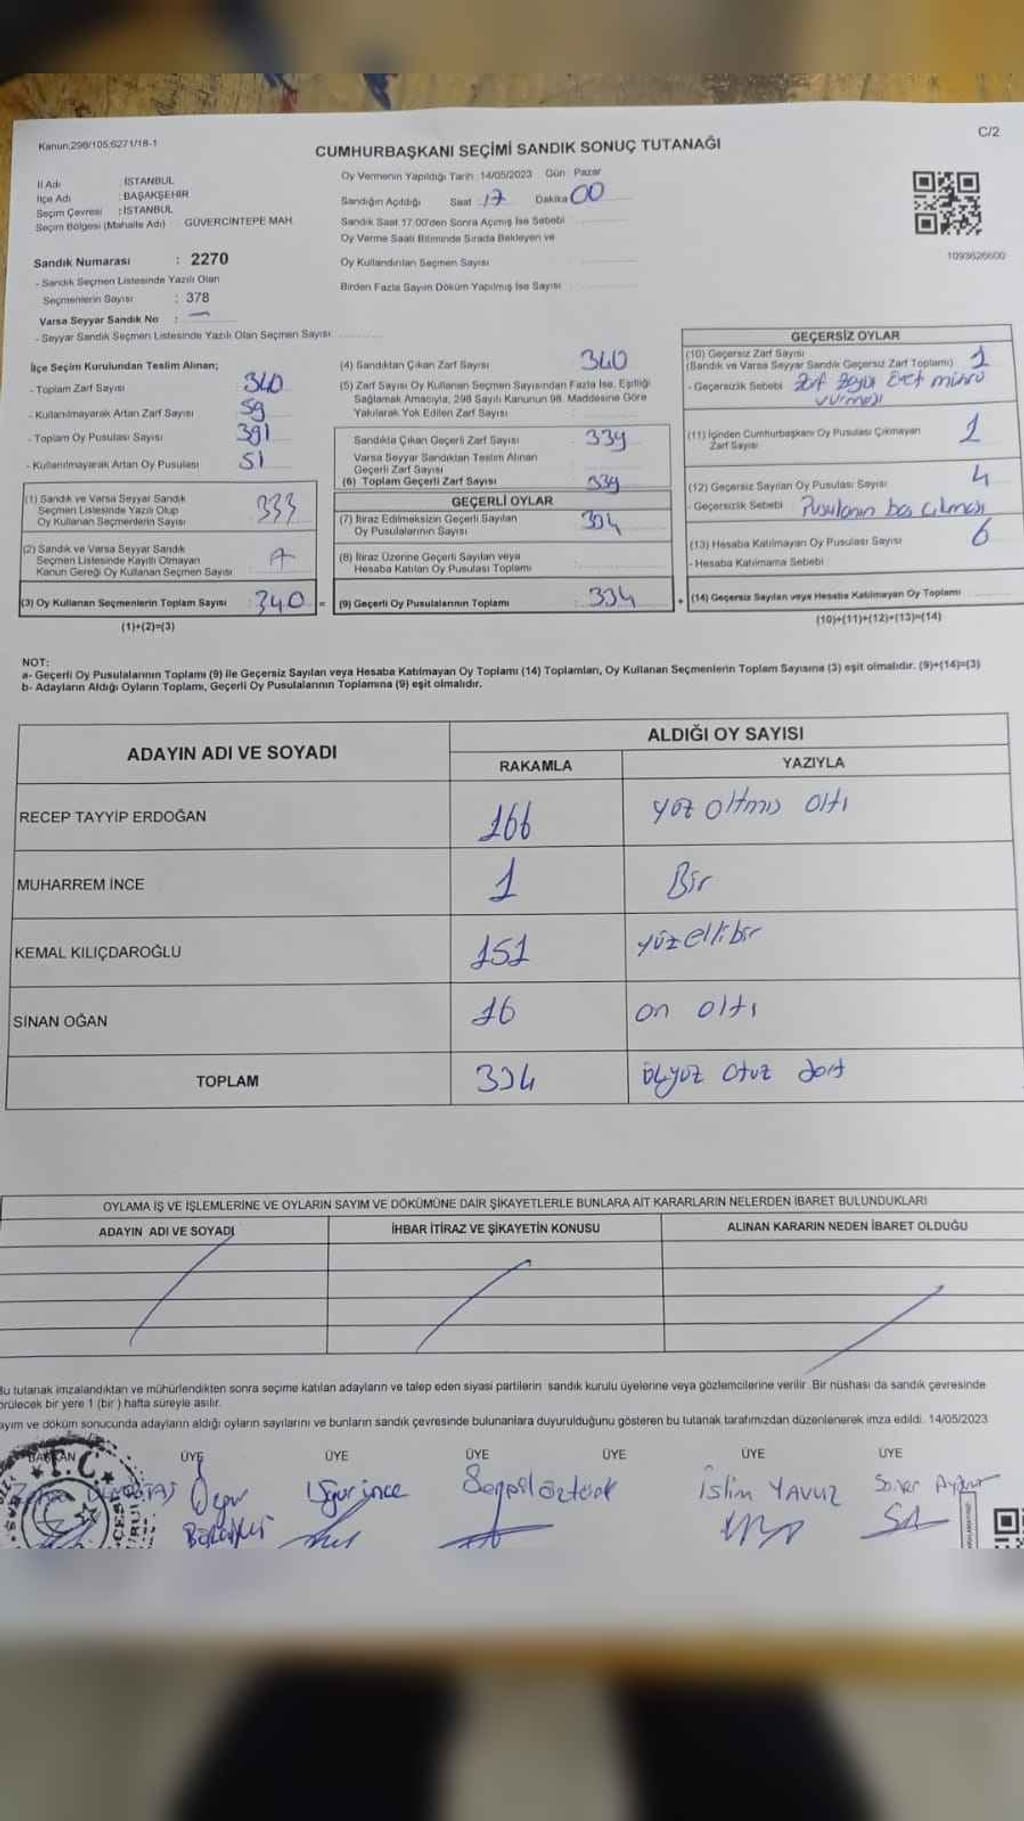 Kanun:298/105;6271/18-1
C/2
CUMHURBAŞKANI SEÇİMİ SANDIK SONUÇ TUTANAĞI
İl Adı : İSTANBUL
İlçe Adı : BAŞAKŞEHİR
Seçim Çevresi : İSTANBUL
Seçim Bölgesi (Mahalle Adı) GÜVERCİNTEPE MAH.
Sandık Numarası : 2270
- Sandık Seçmen Listesinde Yazılı Olan
Seçmenlerin Sayısı : 378
Varsa Seyyar Sandık No : —
- Seyyar Sandık Seçmen Listesinde Yazılı Olan Seçmen Sayısı
Oy Vermenin Yapıldığı Tarih 14/05/2023 Gün Pazar
Sandığın Açıldığı Saat 17 Dakika 00
Sandık Saat 17:00'den Sonra Açılmış İse Sebebi
Oy Verme Saati Bitiminde Sırada Bekleyen ve
Oy Kullandırılan Seçmen Sayısı
Birden Fazla Sayım Döküm Yapılmış İse Sayısı
1093626600
İlçe Seçim Kurulundan Teslim Alınan;
- Toplam Zarf Sayısı 340
- Kullanılmayarak Artan Zarf Sayısı 59
- Toplam Oy Pusulası Sayısı 391
- Kullanılmayarak Artan Oy Pusulası 51
(1) Sandık ve Varsa Seyyar Sandık
Seçmen Listesinde Yazılı Olup
Oy Kullanan Seçmenlerin Sayısı 333
(2) Sandık ve Varsa Seyyar Sandık
Seçmen Listesinde Kayıtlı Olmayan
Kanun Gereği Oy Kullanan Seçmen Sayısı 7
(3) Oy Kullanan Seçmenlerin Toplam Sayısı 340 =
(1)+(2)=(3)
(4) Sandıktan Çıkan Zarf Sayısı 340
(5) Zarf Sayısı Oy Kullanan Seçmen Sayısından Fazla İse, Eşitliği
Sağlamak Amacıyla, 298 Sayılı Kanunun 98. Maddesine Göre
Yakılarak Yok Edilen Zarf Sayısı
Sandıkta Çıkan Geçerli Zarf Sayısı 339
Varsa Seyyar Sandıktan Teslim Alınan
Geçerli Zarf Sayısı
(6) Toplam Geçerli Zarf Sayısı 339
GEÇERLİ OYLAR
(7) İtiraz Edilmeksizin Geçerli Sayılan
Oy Pusulalarının Sayısı 334
(8) İtiraz Üzerine Geçerli Sayılan veya
Hesaba Katılan Oy Pusulası Toplamı
(9) Geçerli Oy Pusulalarının Toplamı 334 +
GEÇERSİZ OYLAR
(10) Geçersiz Zarf Sayısı
(Sandık ve Varsa Seyyar Sandık Geçersiz Zarf Toplamı) 1
- Geçersizlik Sebebi Zarf Evet mührü
vurması
(11) İçinden Cumhurbaşkanı Oy Pusulası Çıkmayan
Zarf Sayısı 1
(12) Geçersiz Sayılan Oy Pusulası Sayısı 4
- Geçersizlik Sebebi Pusulanın boş çıkması
(13) Hesaba Katılmayan Oy Pusulası Sayısı 6
- Hesaba Katılmama Sebebi
(14) Geçersiz Sayılan veya Hesaba Katılmayan Oy Toplamı
(10)+(11)+(12)+(13)=(14)
NOT:
a- Geçerli Oy Pusulalarının Toplamı (9) ile Geçersiz Sayılan veya Hesaba Katılmayan Oy Toplamı (14) Toplamları, Oy Kullanan Seçmenlerin Toplam Sayısına (3) eşit olmalıdır. (9)+(14)=(3)
b- Adayların Aldığı Oyların Toplamı, Geçerli Oy Pusulalarının Toplamına (9) eşit olmalıdır.
ADAYIN ADI VE SOYADI
ALDIĞI OY SAYISI
RAKAMLA YAZIYLA
RECEP TAYYİP ERDOĞAN 166 yüz altmış altı
MUHARREM İNCE 1 Bir
KEMAL KILIÇDAROĞLU 151 yüzellibir
SİNAN OĞAN 16 on altı
TOPLAM 334 üçyüz otuz dört
OYLAMA İŞ VE İŞLEMLERİNE VE OYLARIN SAYIM VE DÖKÜMÜNE DAİR ŞİKAYETLERLE BUNLARA AİT KARARLARIN NELERDEN İBARET BULUNDUKLARI
ADAYIN ADI VE SOYADI İHBAR İTİRAZ VE ŞİKAYETİN KONUSU ALINAN KARARIN NEDEN İBARET OLDUĞU
Bu tutanak imzalandıktan ve mühürlendikten sonra seçime katılan adayların ve talep eden siyasi partilerin sandık kurulu üyelerine veya gözlemcilerine verilir. Bir nüshası da sandık çevresinde
örülecek bir yere 1 (bir) hafta süreyle asılır.
ayım ve döküm sonucunda adayların aldığı oyların sayılarını ve bunların sandık çevresinde bulunanlara duyurulduğunu gösteren bu tutanak tarafımızdan düzenlenerek imza edildi. 14/05/2023
BAŞKAN ÜYE ÜYE ÜYE ÜYE ÜYE ÜYE
T.C.
Uğur ince
öztürk
İslim YAVUZ